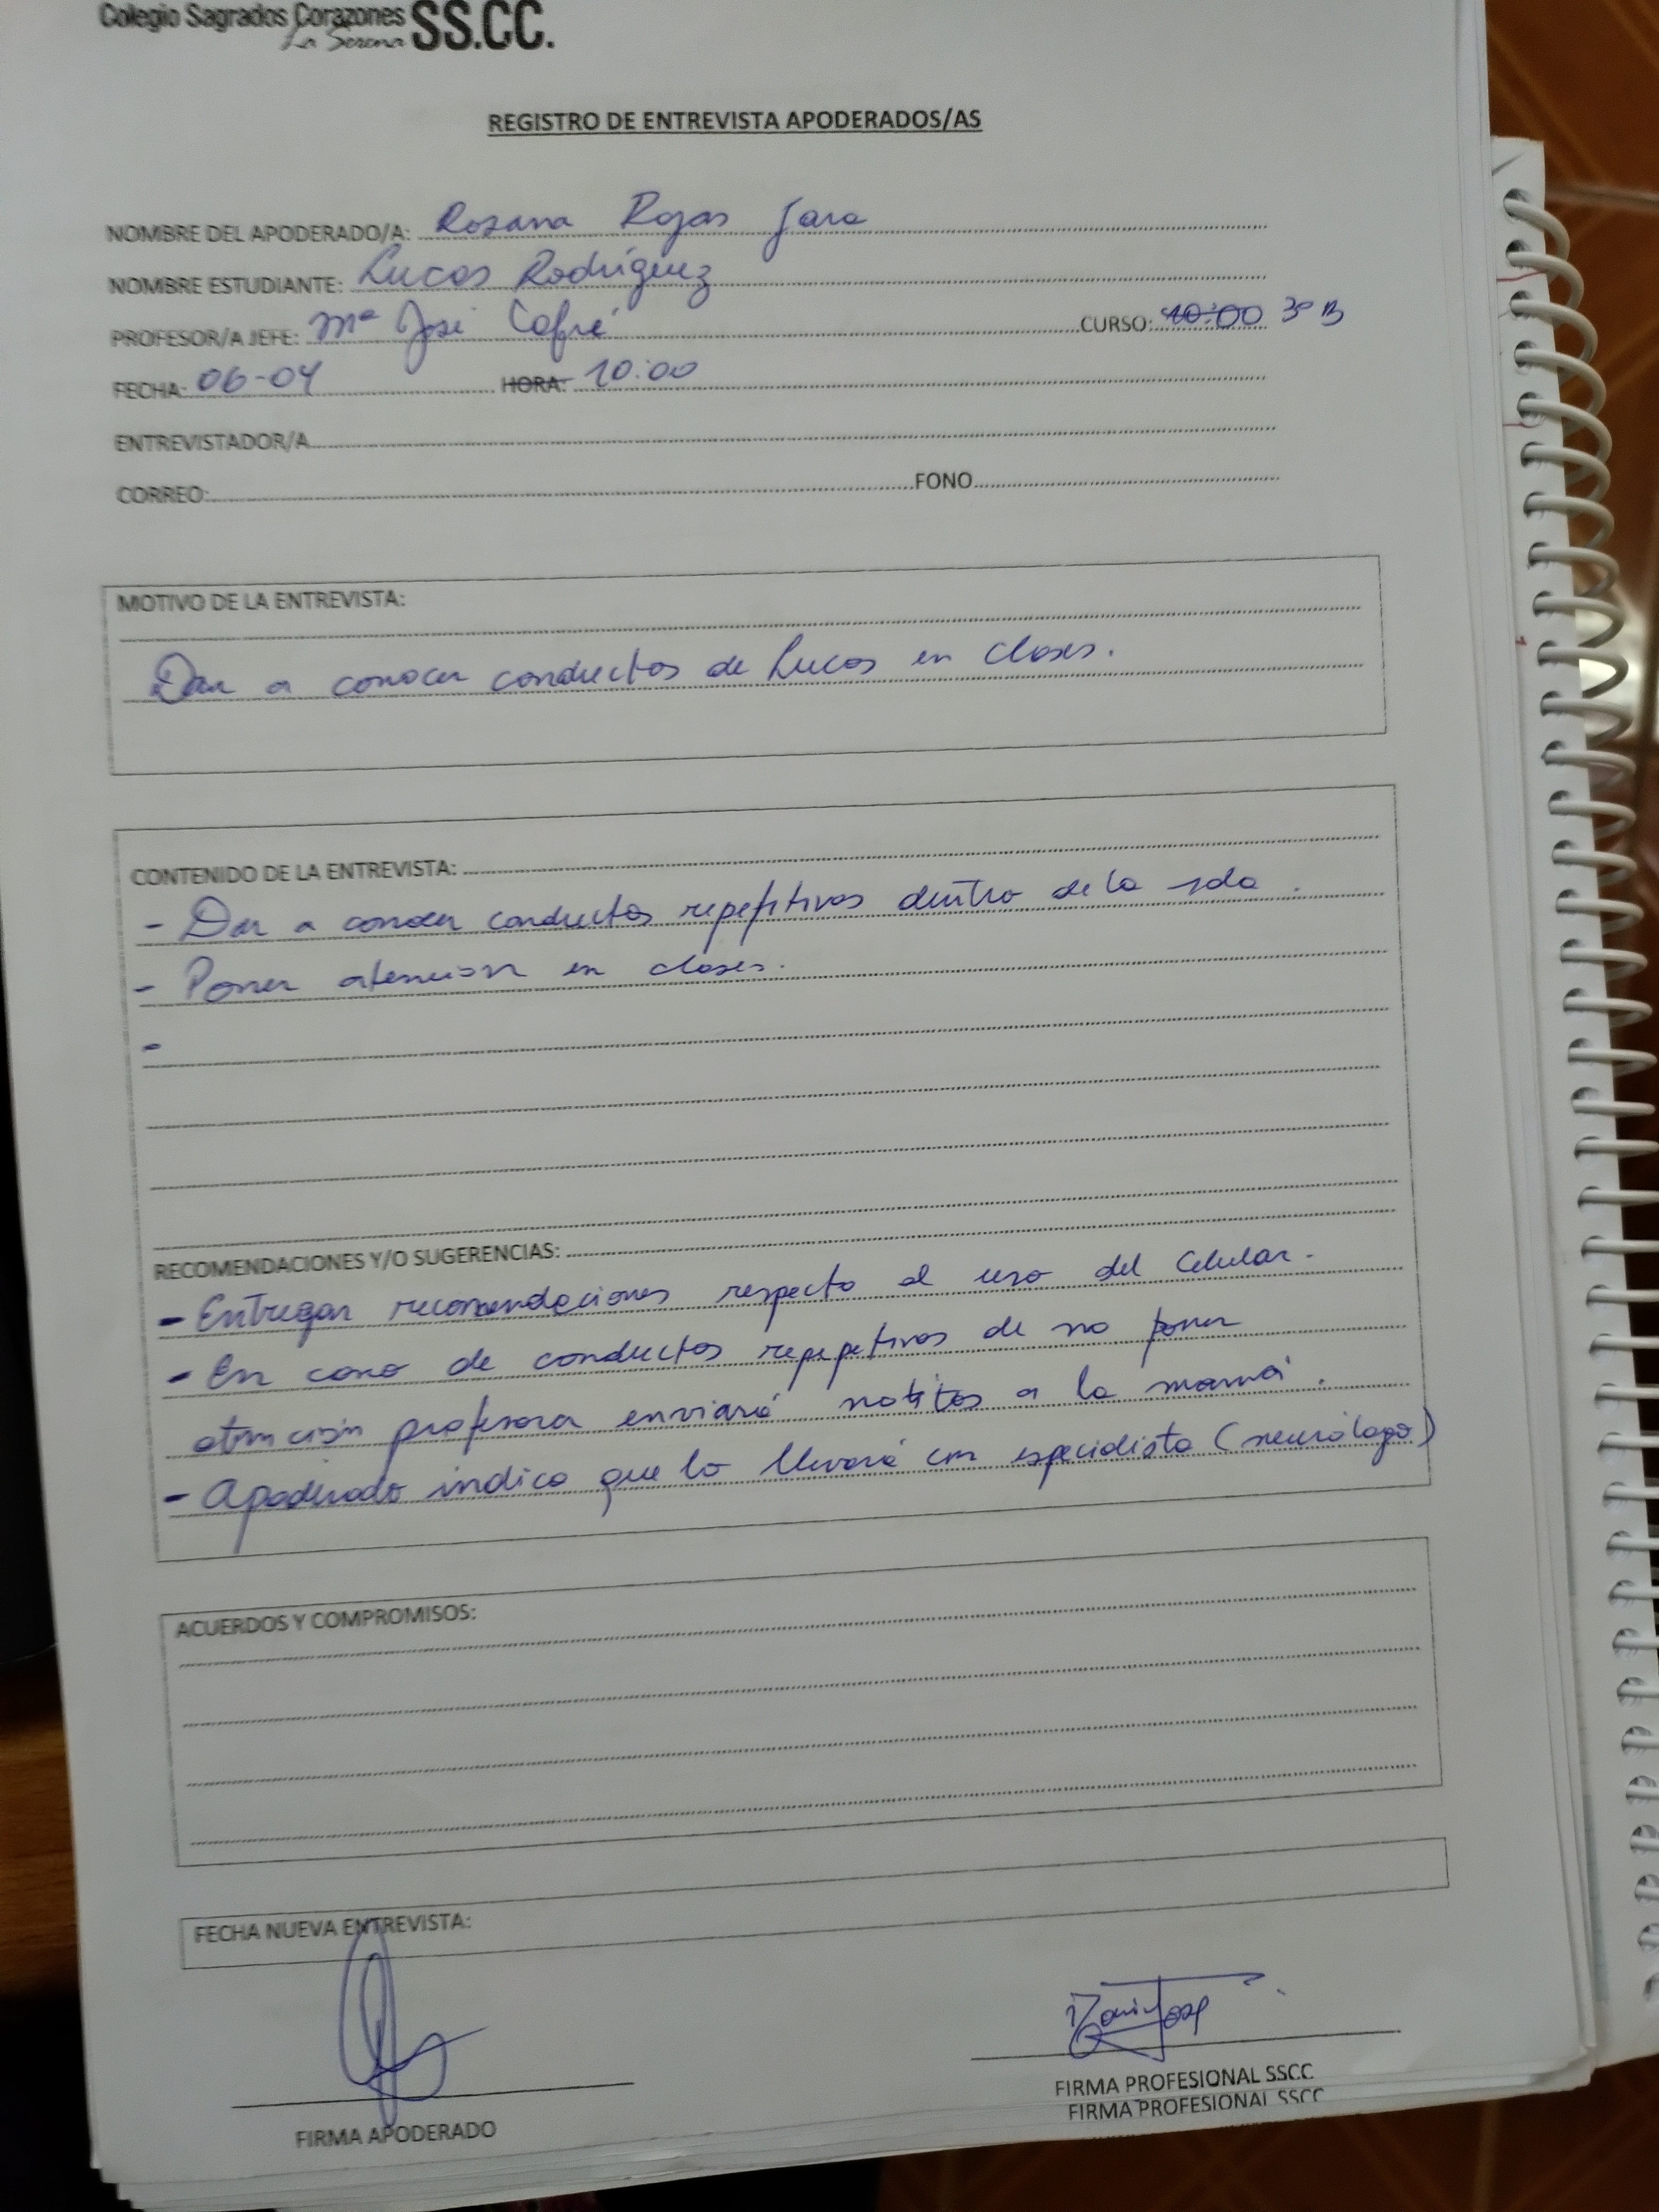 Colegio Sagrados Corazones SS.CC.
La Serena
REGISTRO DE ENTREVISTA APODERADOS/AS
NOMBRE DEL APODERADO/A: Rosana Rojas Jara
NOMBRE ESTUDIANTE: Lucas Rodríguez
PROFESOR/A JEFE: Mª José Cofré CURSO: 10:00 3º B
FECHA: 06-04 HORA: 10:00
ENTREVISTADOR/A
CORREO: FONO
MOTIVO DE LA ENTREVISTA:
Dar a conocer conductas de Lucas en clases.
CONTENIDO DE LA ENTREVISTA:
- Dar a conocer conductas repetitivas dentro de la sala.
- Poner atención en clases.
-
RECOMENDACIONES Y/O SUGERENCIAS:
- Entregar recomendaciones respecto al uso del Celular.
- En caso de conductas repepetivas de no poner
atención profesora enviará notitas a la mamá.
- Apoderado indica que lo llevará con especialista (neurólogo)
ACUERDOS Y COMPROMISOS:
FECHA NUEVA ENTREVISTA:
FIRMA APODERADO
FIRMA PROFESIONAL SSCC
FIRMA PROFESIONAL SSCC